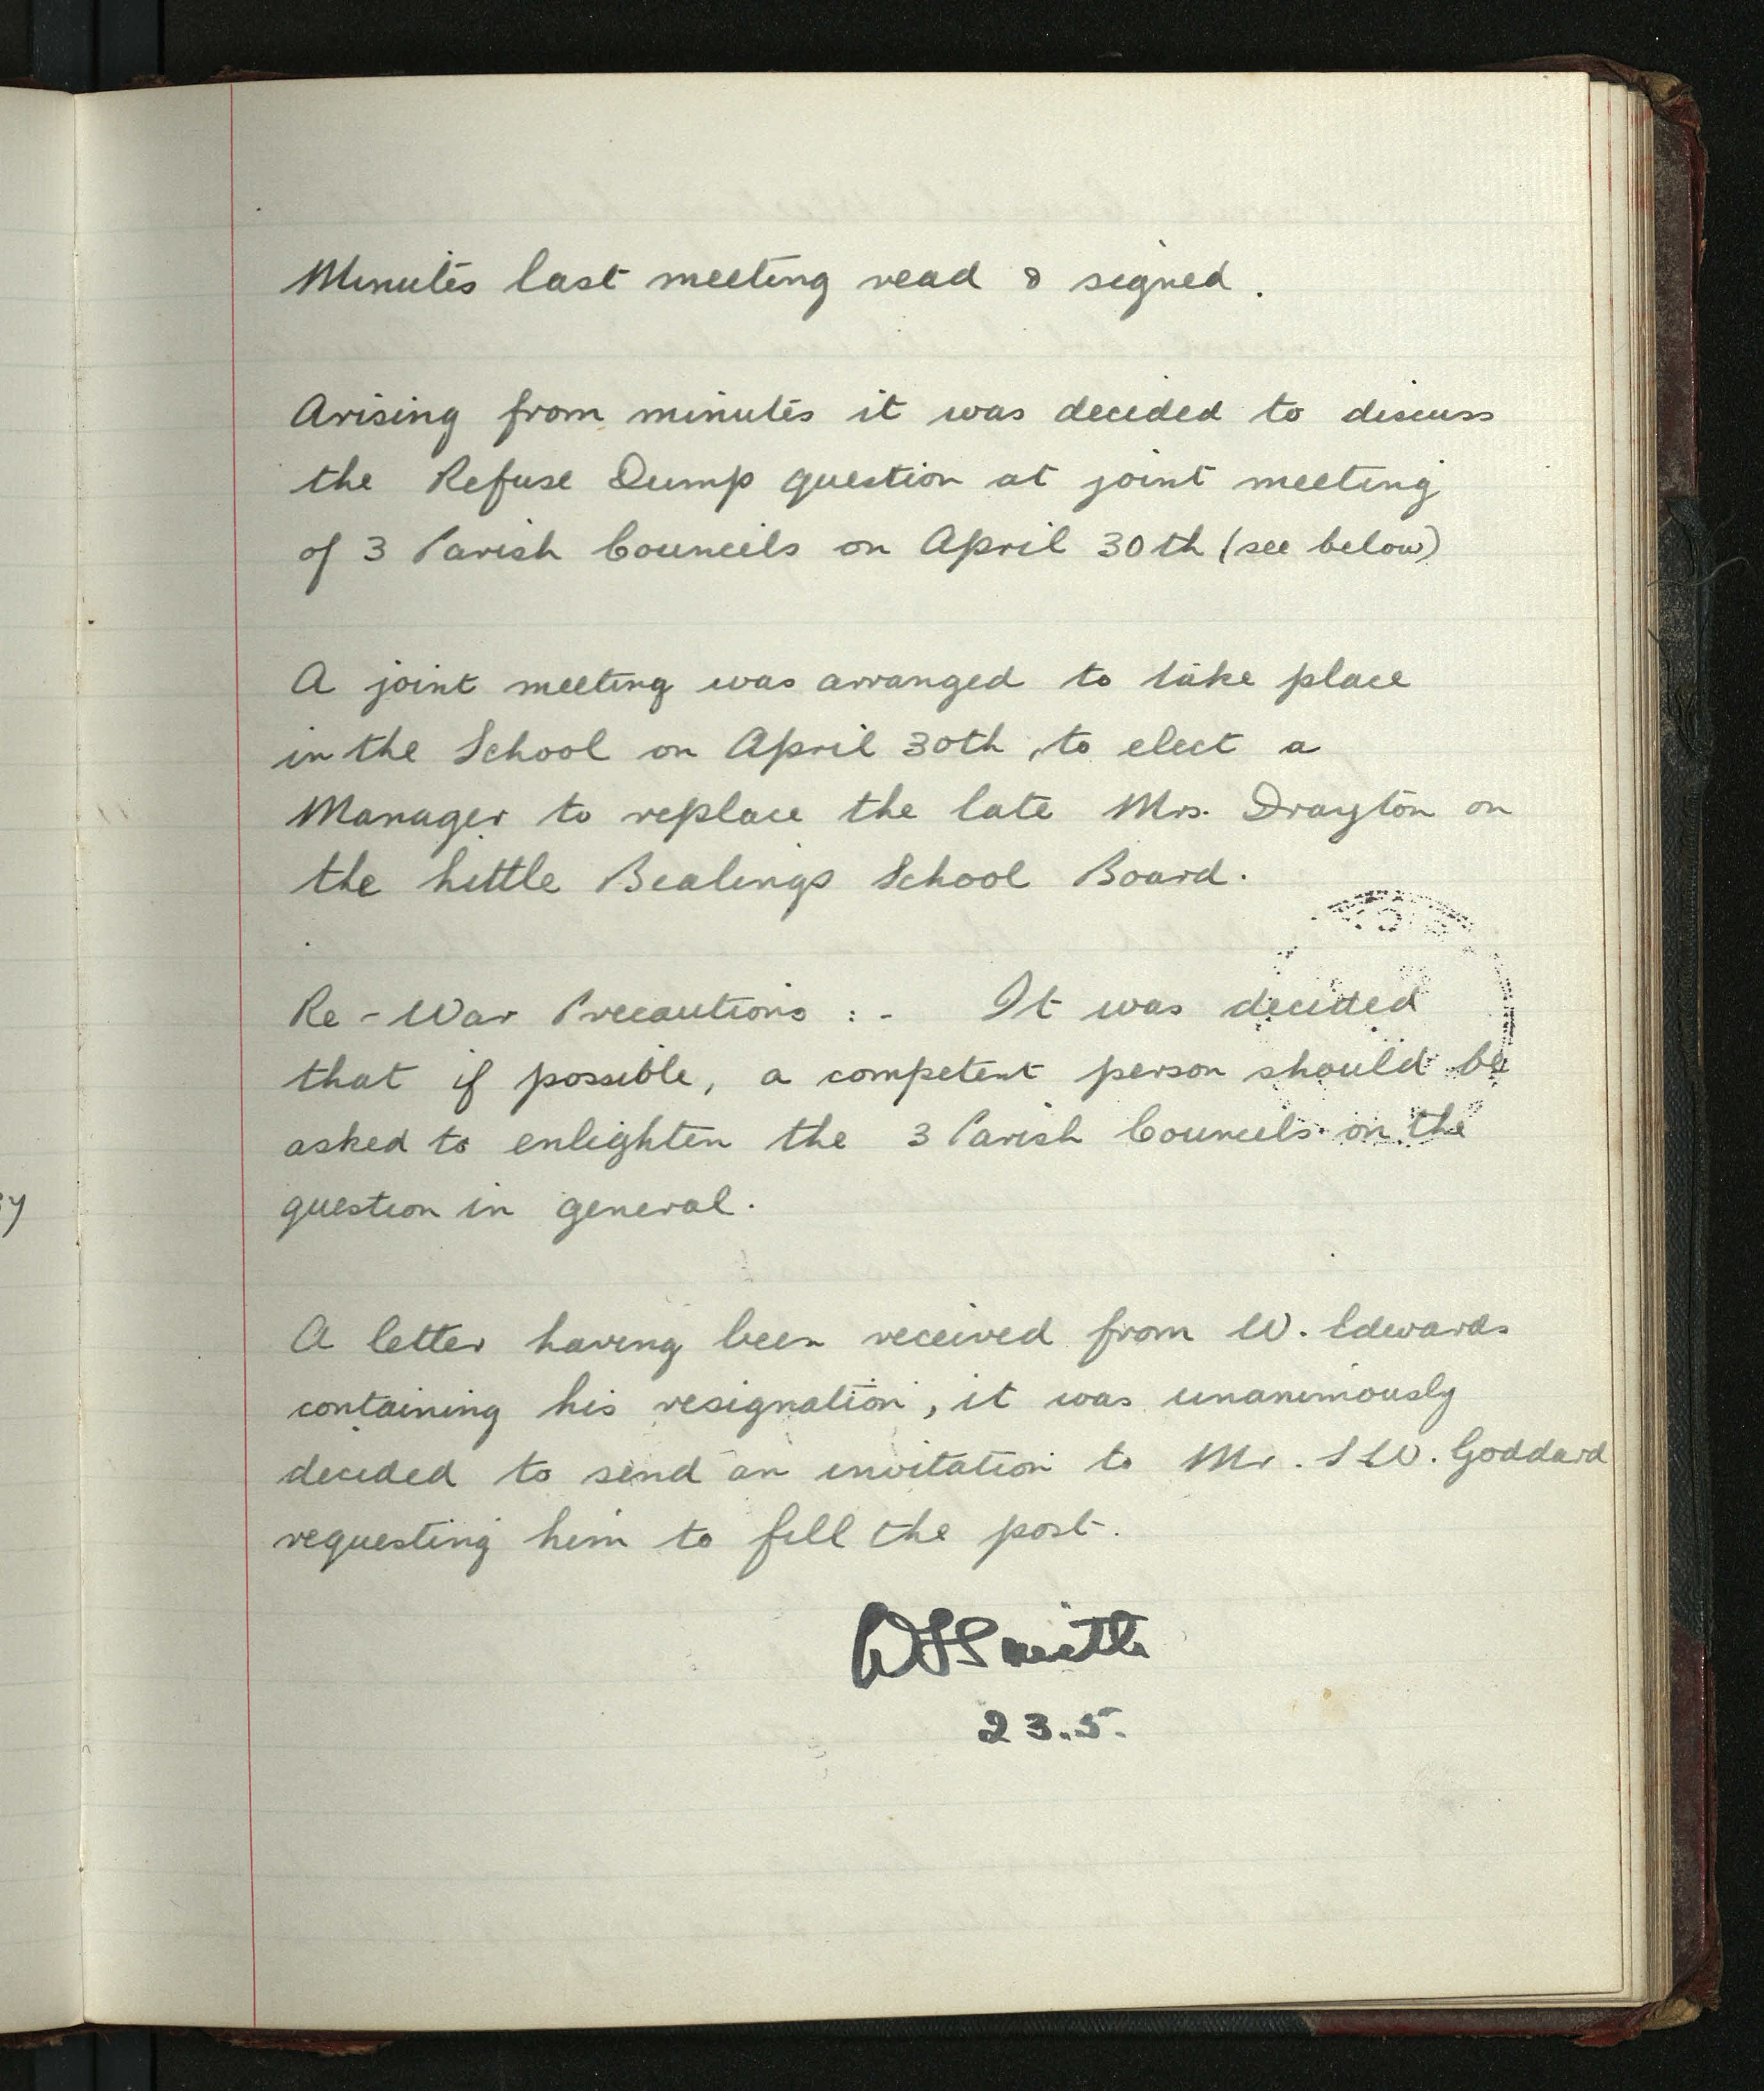 Minutes last meeting read & signed.
Arising from minutes it was decided to discuss
the Refuse Dump question at joint meeting
of 3 Parish Councils on April 30th (see below)
A joint meeting was arranged to take place
in the School on April 30th, to elect a
Manager to replace the late Mrs. Drayton on
the Little Bealings School Board.
Re - War Precautions : - It was decided
that if possible, a competent person should be
asked to enlighten the 3 Parish Councils on the
question in general.
A letter having been received from W. Edwards
containing his resignation, it was unanimously
decided to send an invitation to Mr. S W. Goddard
requesting him to fill the post.
Smith
23.5.